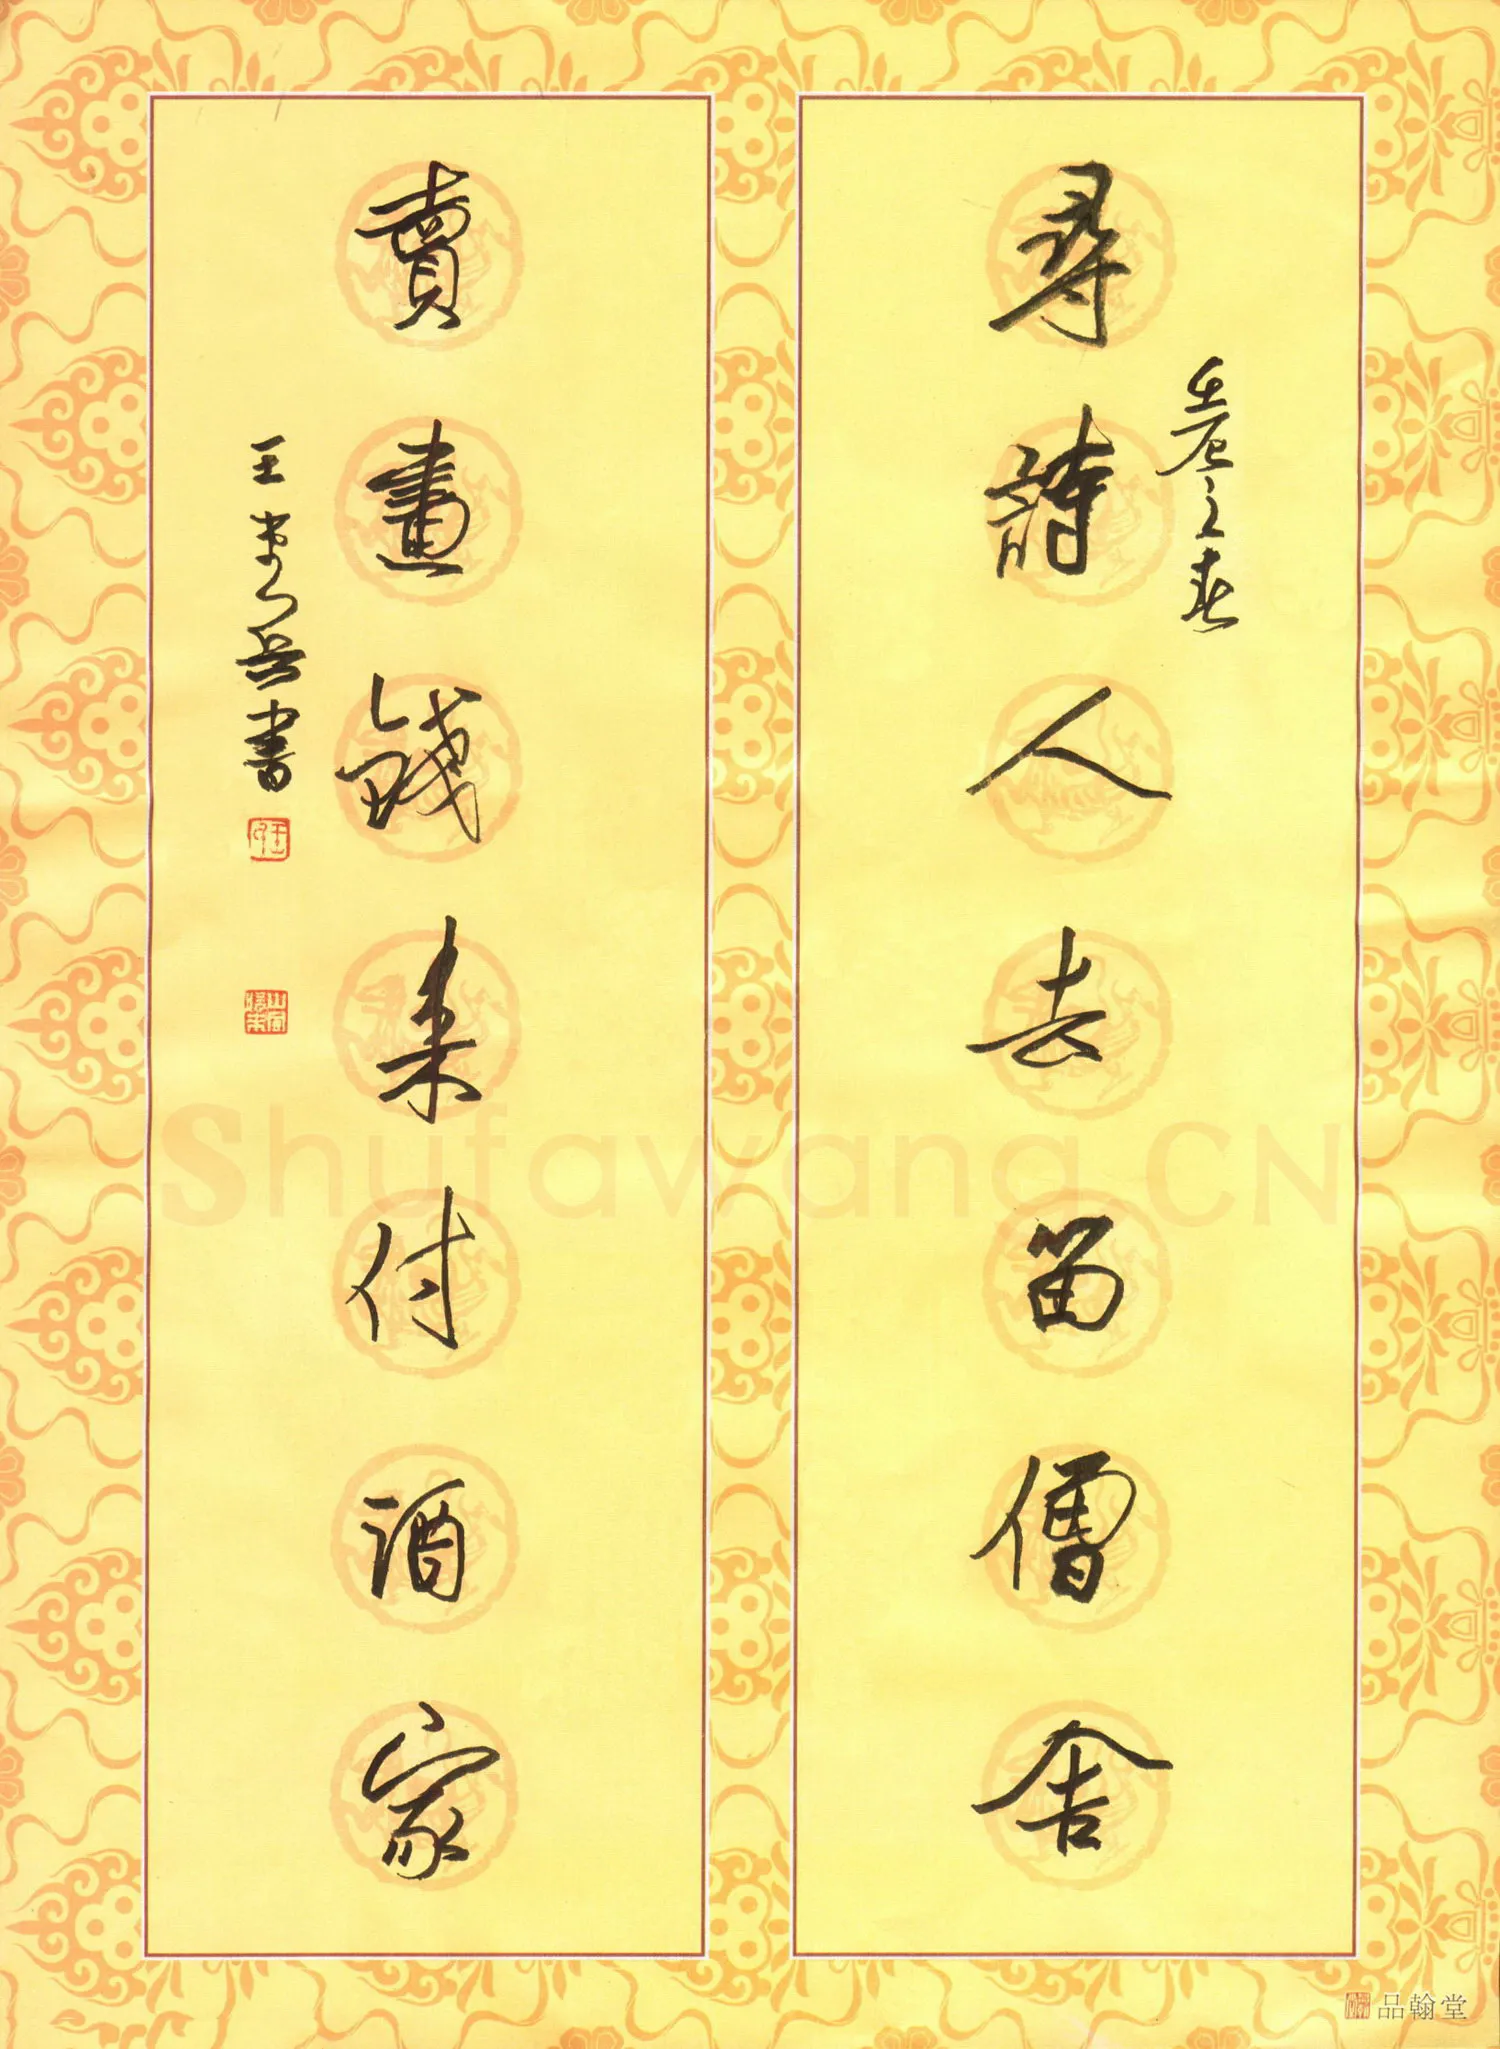 尋詩人去留僧舍
壬辰之春
賣畫錢來付酒家
王岳書
Shufawang.CN
品翰堂